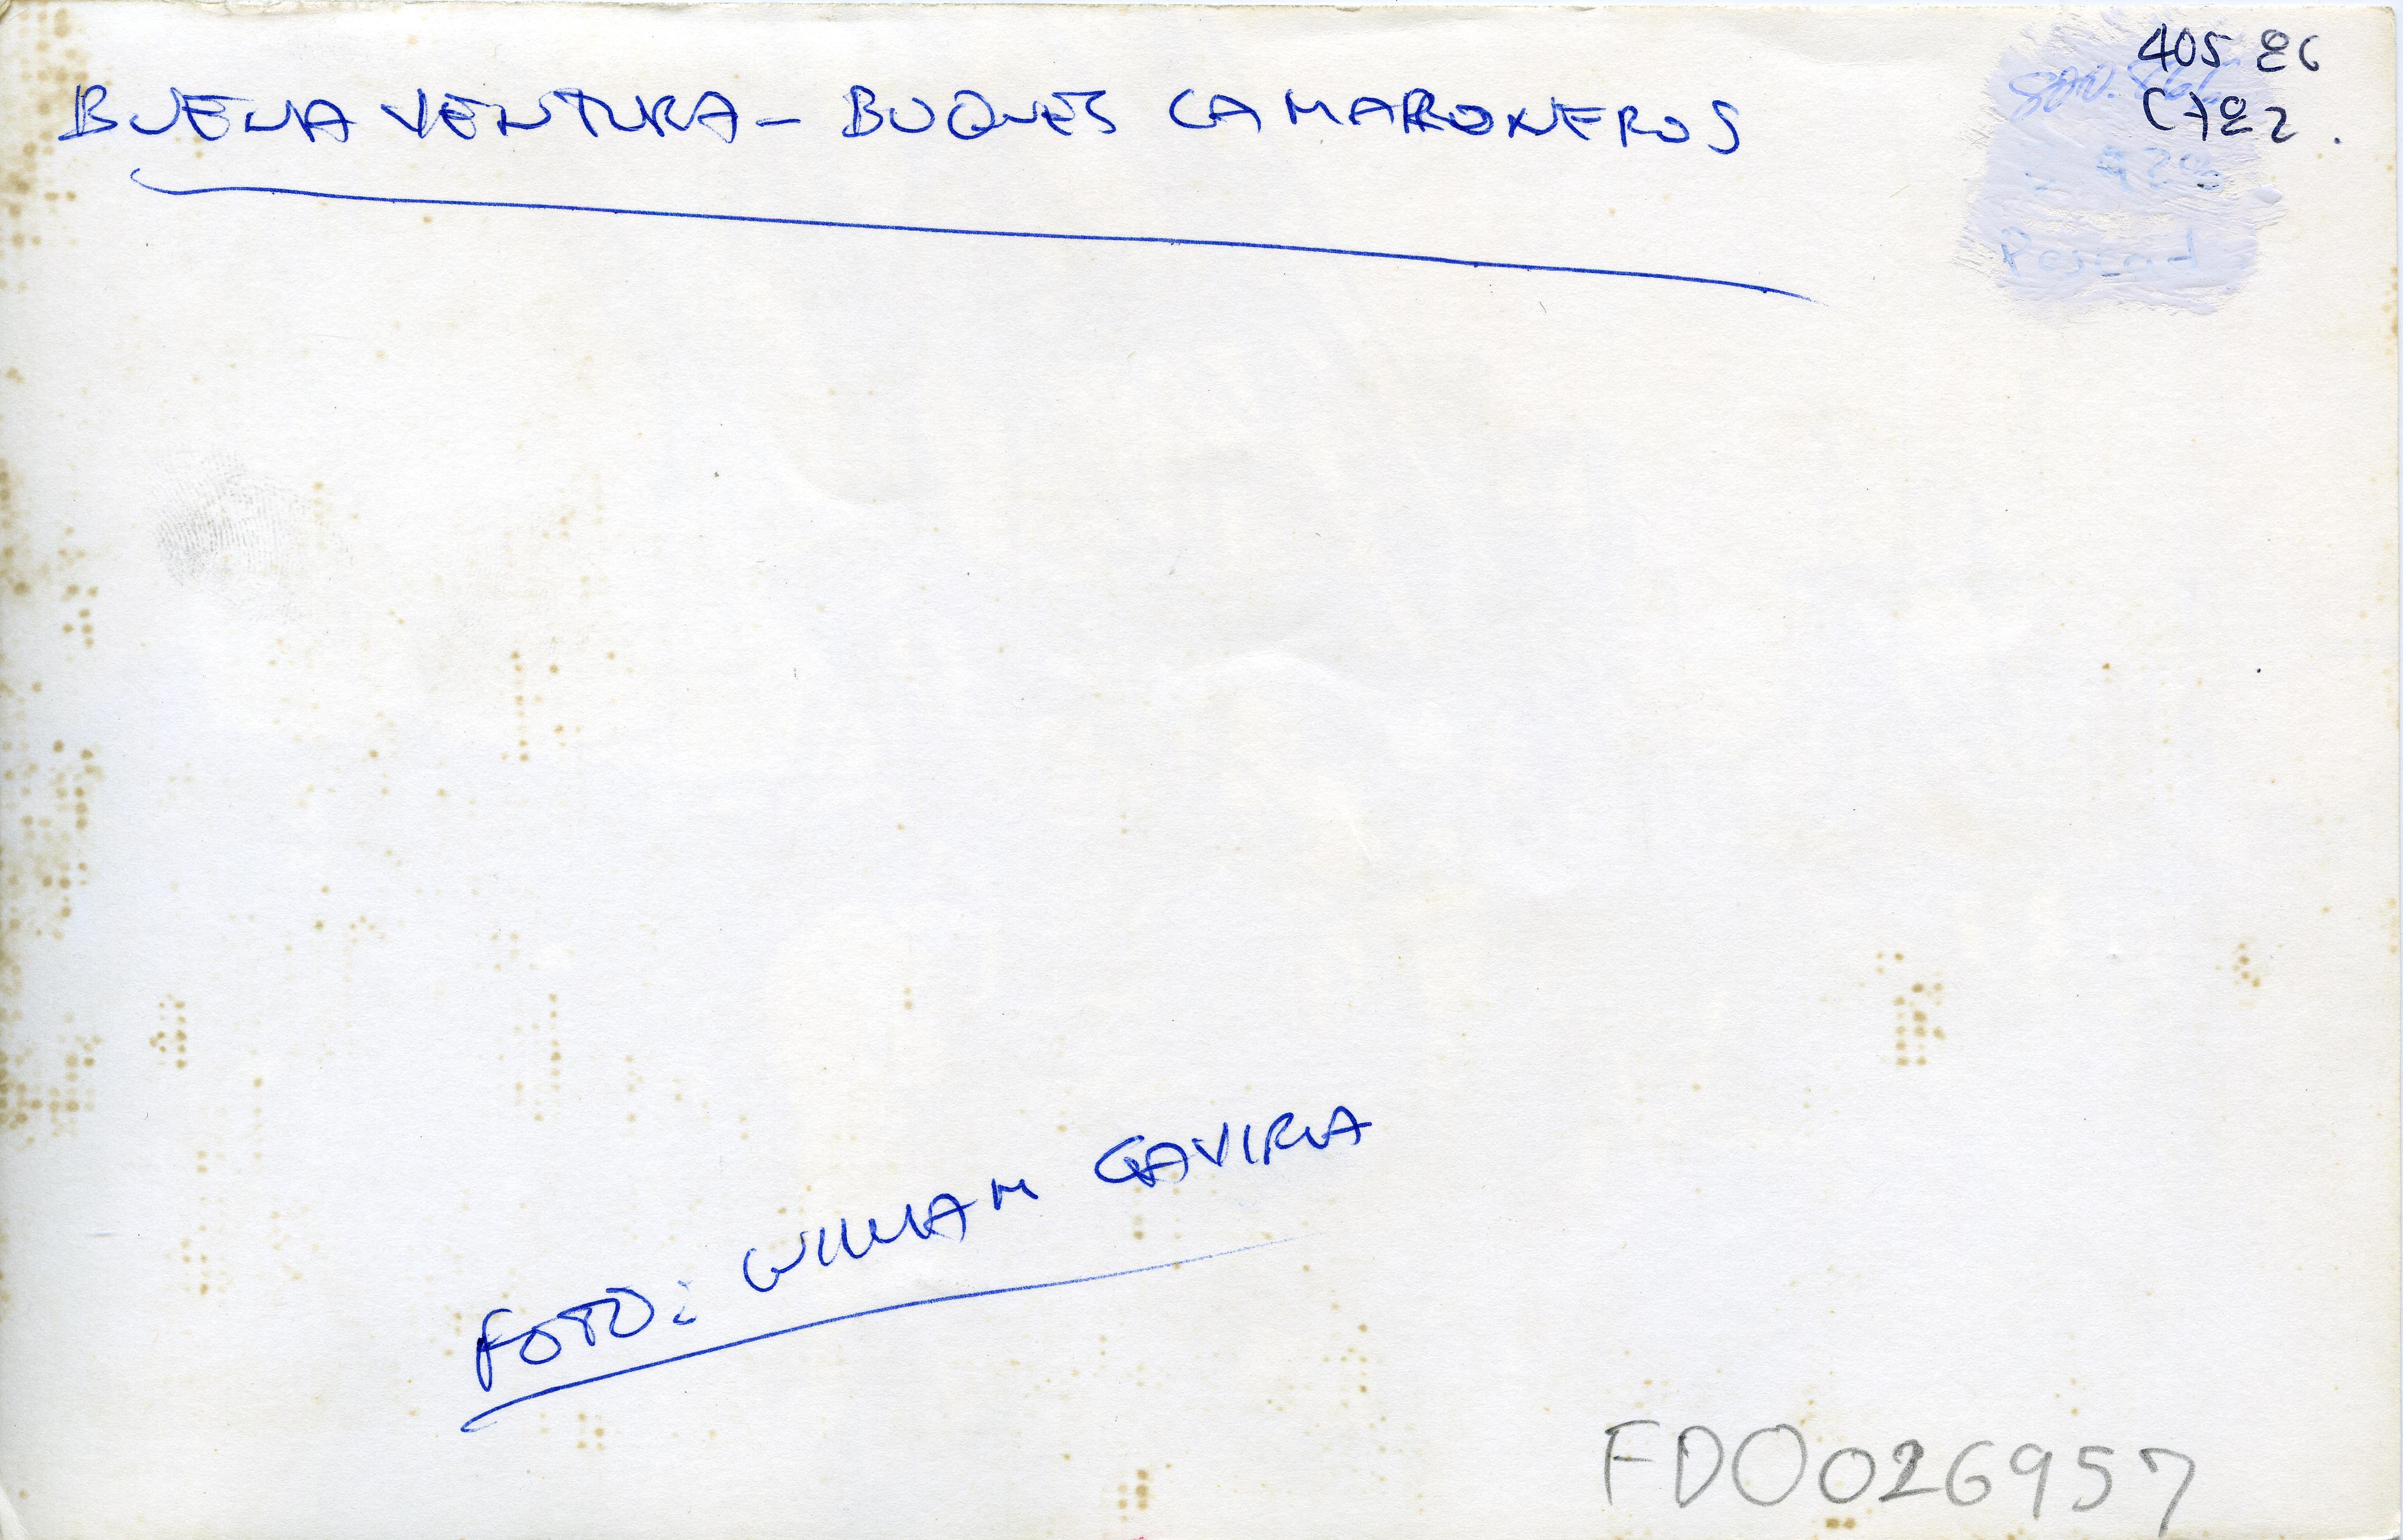 BUENAVENTURA - BUQUES CAMARONEROS
405 º6
C7 º2.
FOTO: WILLIAM GAVIRIA
FDO026957